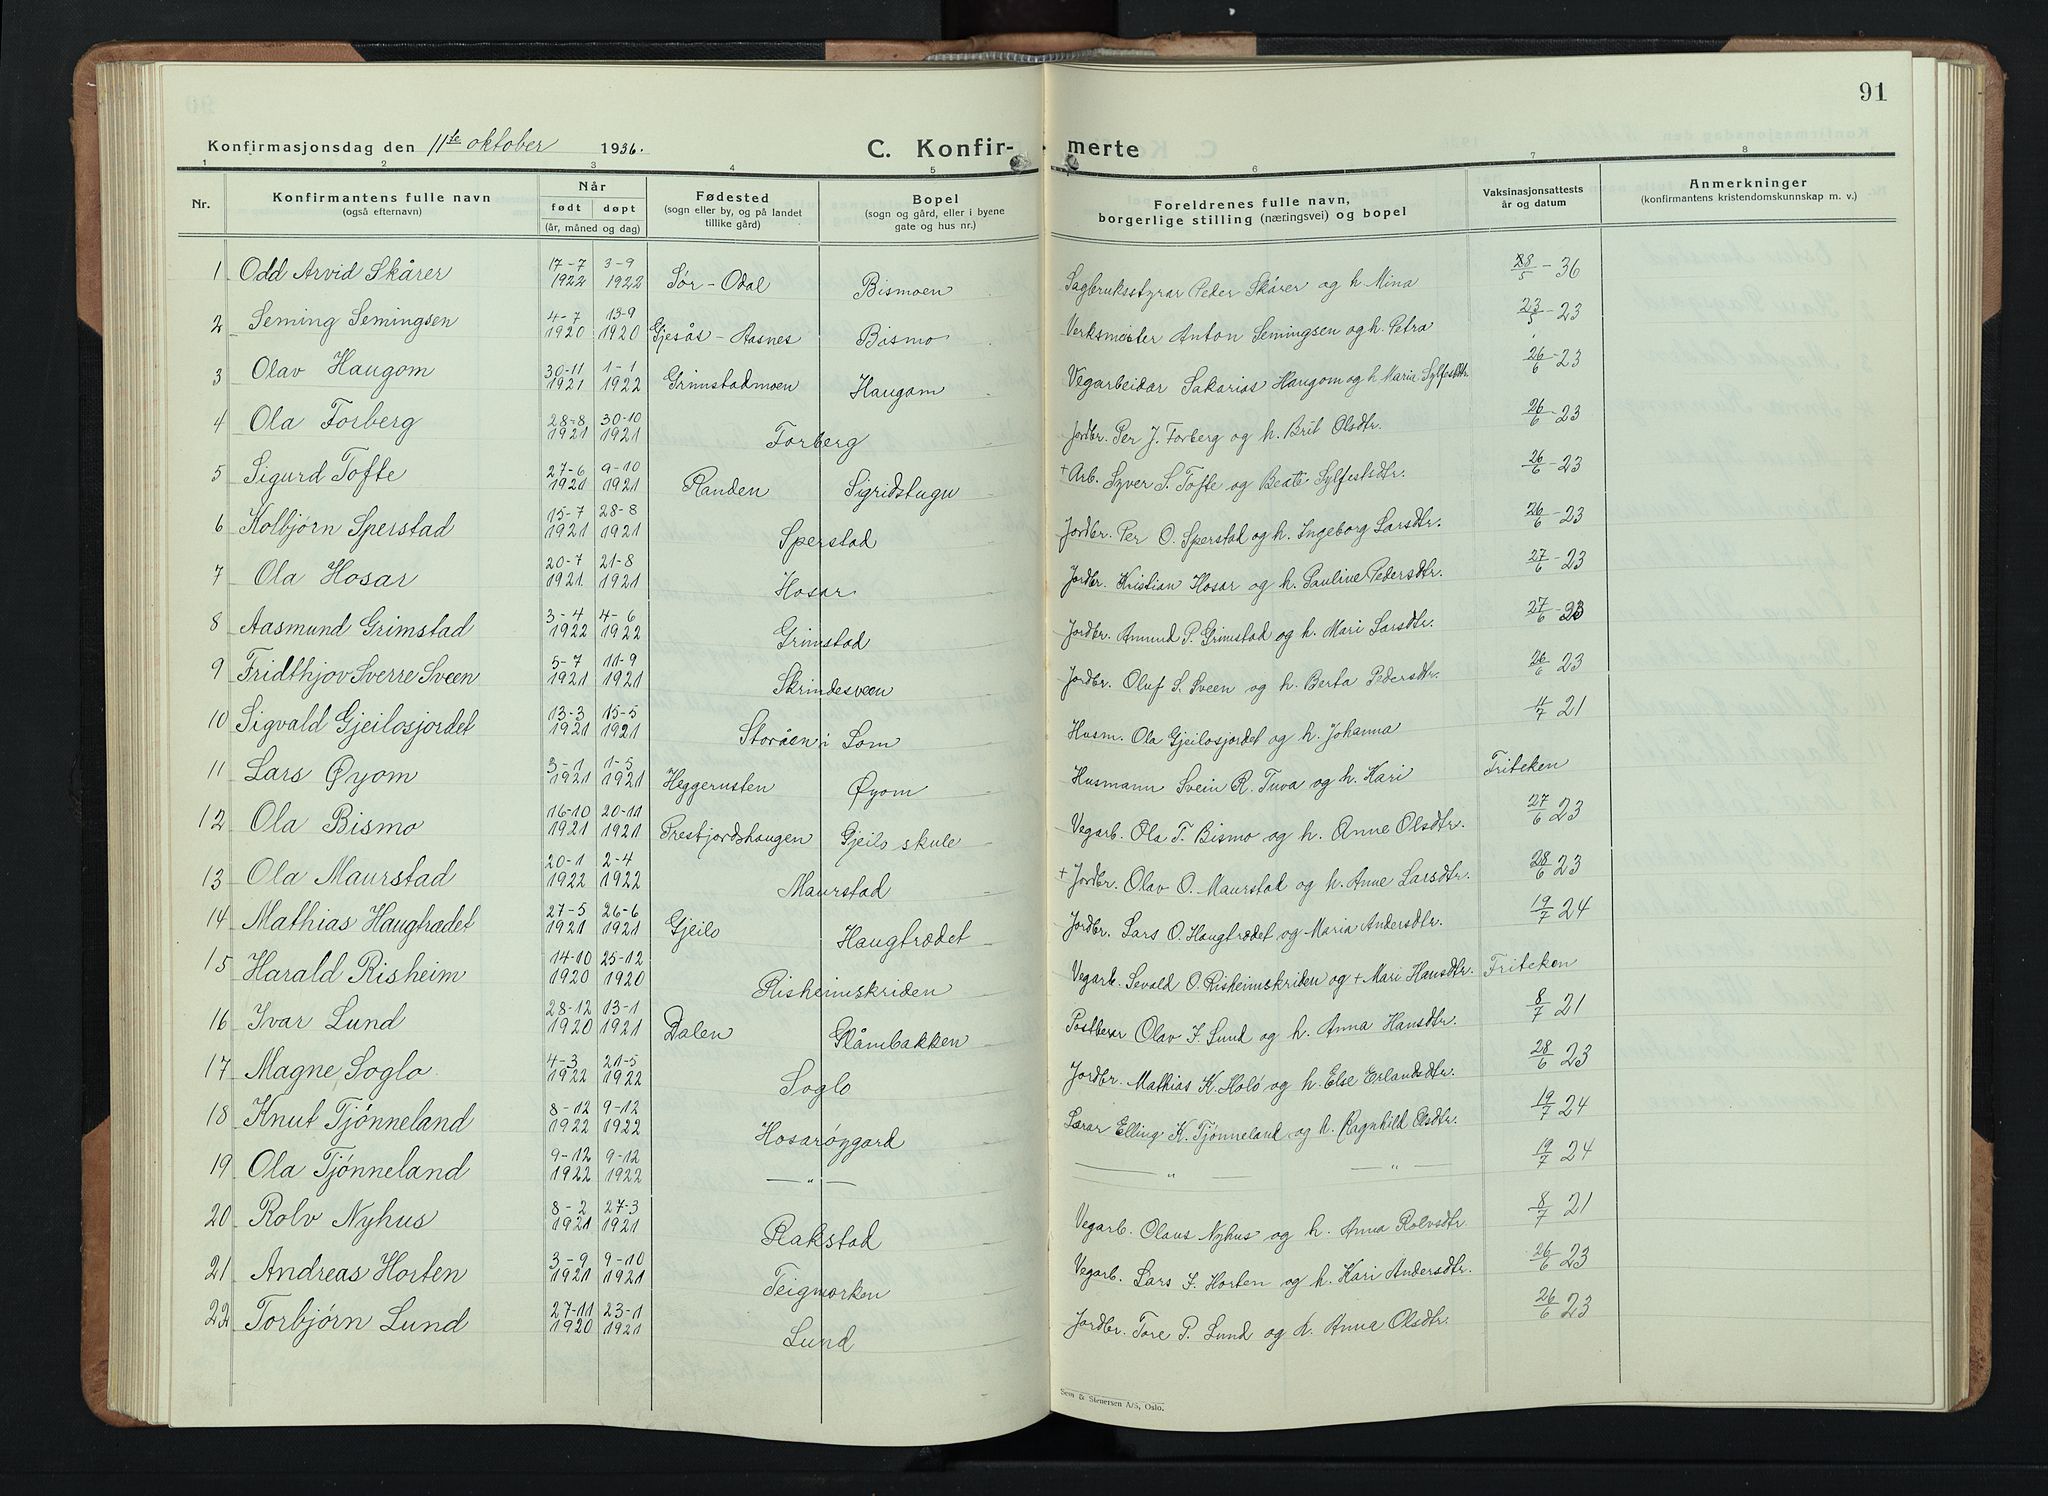 91
Konfirmasjonsdag den 11te oktober 1936.
C. Konfir- merte
1 2 3 4 5 6 7 8
Nr. Konfirmantens fulle navn (også efternavn) Når født døpt (år, måned og dag) Fødested (sogn eller by, og på landet tillike gård) Bopel (sogn og gård, eller i byene gate og hus nr.) Foreldrenes fulle navn, borgerlige stilling (næringsvei) og bopel Vaksinasjonsattests år og datum Anmerkninger (konfirmantens kristendomskunnskap m. v.)
1 Odd Arvid Skårer 17-7 1922 3-9 1922 Sør-Odal Bismoen Sagbruksstyrar Peder Skårer og h. Mina 28/5 - 36
2 Seming Semingsen 4-7 1920 13-9 1920 Gjesås - Aasnes Bismo Verksmeister Anton Semingsen og h. Petra 23/5 - 23
3 Olav Haugom 30-11 1921 1-1 1922 Grimstadmoen Haugom Vegarbeidar Sakarias Haugom og h. Maria Sylfestdtr. 26/6 - 23
4 Ola Forberg 28-8 1921 30-10 1921 Forberg Jordbr. Per J. Forberg og h. Brit Olsdtr. 26/6 - 23
5 Sigurd Tofte 27-6 1921 9-10 1921 Randen Sigridstugu + Arb. Syver S. Tofte og Beate Sylfestsdtr. 26/6 - 23
6 Kolbjørn Sperstad 15-7 1921 28-8 1921 Sperstad Jordbr. Per O. Sperstad og h. Ingeborg Larsdtr. 26/6 - 23
7 Ola Hosar 20-7 1921 21-8 1921 Hosar Jordbr. Kristian Hosar og h. Pauline Pedersdtr. 27/6 - 23
8 Aasmund Grimstad 3-4 1922 4-6 1922 Grimstad Jordbr. Amund P. Grimstad og h. Mari Larsdtr. 27/6 - 23
9 Fridthjov Sverre Sveen 5-7 1921 11-9 1921 Skrindesveen Jordbr. Oluf S. Sveen og h. Berta Pedersdtr. 26/6 23
10 Sigvald Gjeilosjordet 13-3 1921 15-5 1921 Storåen i Lom Husm. Ola Gjeilosjordet og h. Johanna 11/7 21
11 Lars Øyom 3-1 1921 1-5 1921 Heggerusten Øyom Husmann Svein R. Tuva og h. Kari Friteken
12 Ola Bismo 16-10 1921 20-11 1921 Prestjordshaugen Gjeilo skule Vegarb. Ola T. Bismo og h. Anne Olsdtr. 27/6 23
13 Ola Maurstad 20-1 1922 2-4 1922 Maurstad + Jordbr. Olav O. Maurstad og h. Anne Larsdtr. 28/6 23
14 Mathias Haugtrædet 27-5 1921 26-6 1921 Gjeilo Haugtrædet Jordbr. Lars O. Haugtrædet og Maria Andersdtr. 19/7 24
15 Harald Risheim 14-10 1920 25-12 1920 Risheimskriden Vegarb. Sevald O. Risheimskriden og + Mari Hansdtr. Friteken
16 Ivar Lund 28-12 1920 13-1 1921 Dalen Glåmbakken Postberar Olav I. Lund og h. Anna Hansdtr. 8/7 21
17 Magne Soglo 4-3 1922 21-5 1922 Soglo Jordbr. Mathias K. Holø og h. Else Erlandsdtr. 28/6 23
18 Knut Tjønneland 8-12 1922 9-12 1922 Hosarøygard Lærar Elling K. Tjønneland og h. Ragnhild Olsdtr. 19/7 24
19 Ola Tjønneland 9-12 1922 9-12 1922 — " — — " — — " — 19/7 24
20 Rolv Nyhus 8-2 1921 27-3 1921 Rakstad Vegarb. Olaus Nyhus og h. Anna Rolvsdtr. 8/7 21
21 Andreas Horten 3-9 1921 9-10 1921 Teigmorken Vegarb. Lars I. Horten og h. Kari Andersdtr. 26/6 23
22 Torbjørn Lund 27-11 1920 23-1 1921 Lund Jordbr. Tore P. Lund og h. Anna Olsdtr. 26/6 23
Sem & Stenersen A/S, Oslo.